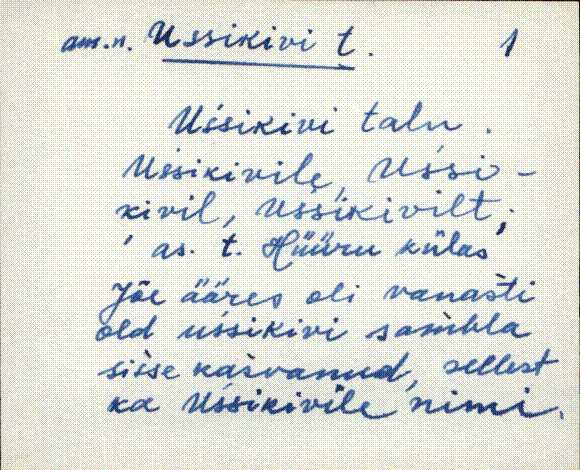 am.n. Ussikivi t. 1
Uśsikivi talu.
Uśsikivile, Uśsi-
kivil, Uśsikivilt;
as. t. Hüüru külas
Jõe ääres oli vanaśti
old uśsikivi sambla
siśse kaśvanud, sellest
ka Uśsikivile nimi.